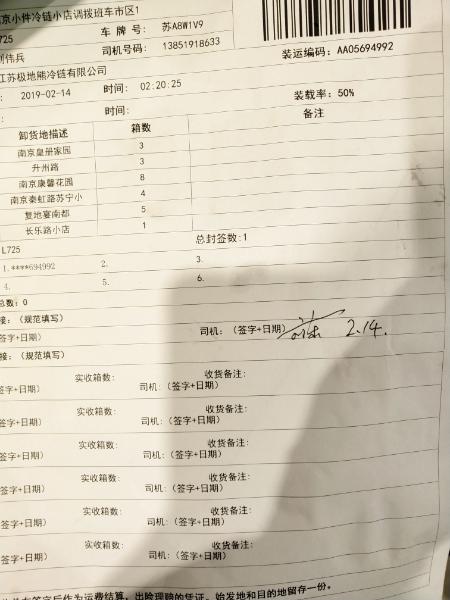 京小件冷链小店调拨班车市区1
725 车 牌 号: 苏A8W1V9
刘伟兵 司机号码: 13851918633
江苏极地熊冷链有限公司 装运编码: AA05694992
: 2019-02-14 时间: 02:20:25
: 时间: 装载率: 50%
卸货地描述 箱数 备注
南京皇册家园 3
升州路 3
南京康馨花园 8
南京秦虹路苏宁小 4
复地宴南都 5
长乐路小店 1
L725 总封签数:1
1.****694992 2. 3.
4. 5. 6.
总数: 0
接: (规范填写)
签字+日期) 司机: (签字+日期) 2.14.
接: (规范填写)
签字+日期) 实收箱数: 收货备注:
司机: (签字+日期)
签字+日期) 实收箱数: 收货备注:
司机: (签字+日期)
签字+日期) 实收箱数: 收货备注:
司机: (签字+日期)
签字+日期) 实收箱数: 收货备注:
司机: (签字+日期)
签字+日期) 实收箱数: 收货备注:
司机: (签字+日期)
签字+日期) 实收箱数: 收货备注:
司机: (签字+日期)
签字后作为运费结算, 出险理赔的凭证。始发地和目的地留存一份。